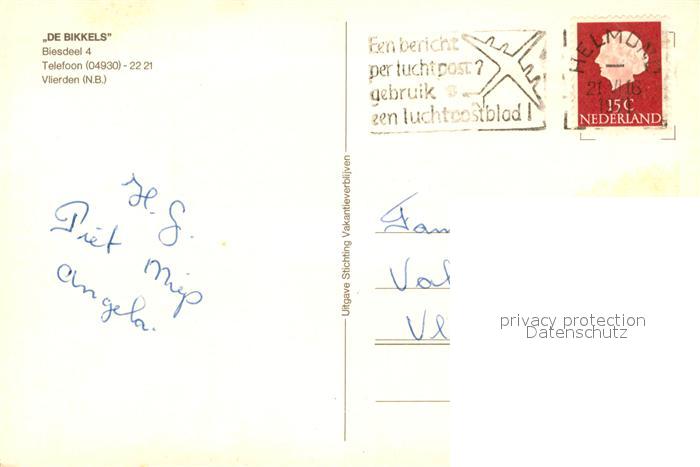 „DE BIKKELS"
Biesdeel 4
Telefoon (04930) - 22 21
Vlierden (N.B.)
Een bericht
per luchtpost?
gebruik
een luchtpostblad!
HELMOND
15 C
NEDERLAND
H. G.
Piet Miep
Angela.
Uitgave Stichting Vakantieverblijven
Fam
Val
Vl
privacy protection
Datenschutz